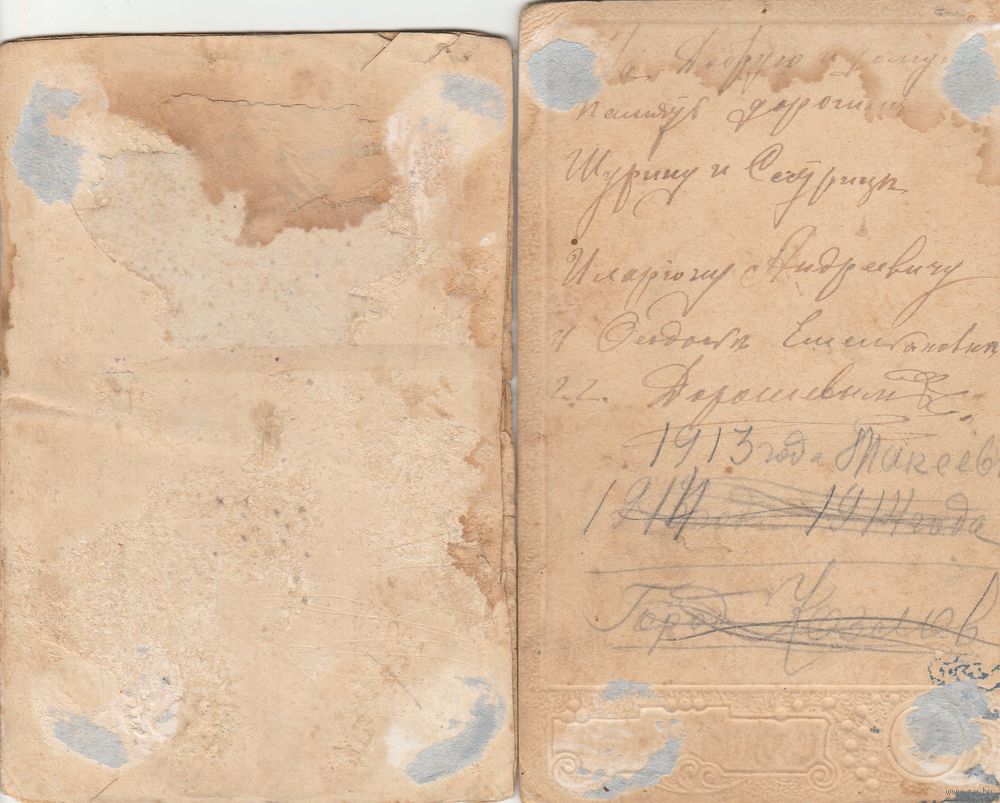 На Добрую и долгую
память дорогимъ
Шурину и Сестрицѣ
Иларiону Андреевичу
и Ѳеодосiи Емельяновнѣ
г.г. Дорошевымъ
1913 года Макеев
1914 года 1914 года
Город